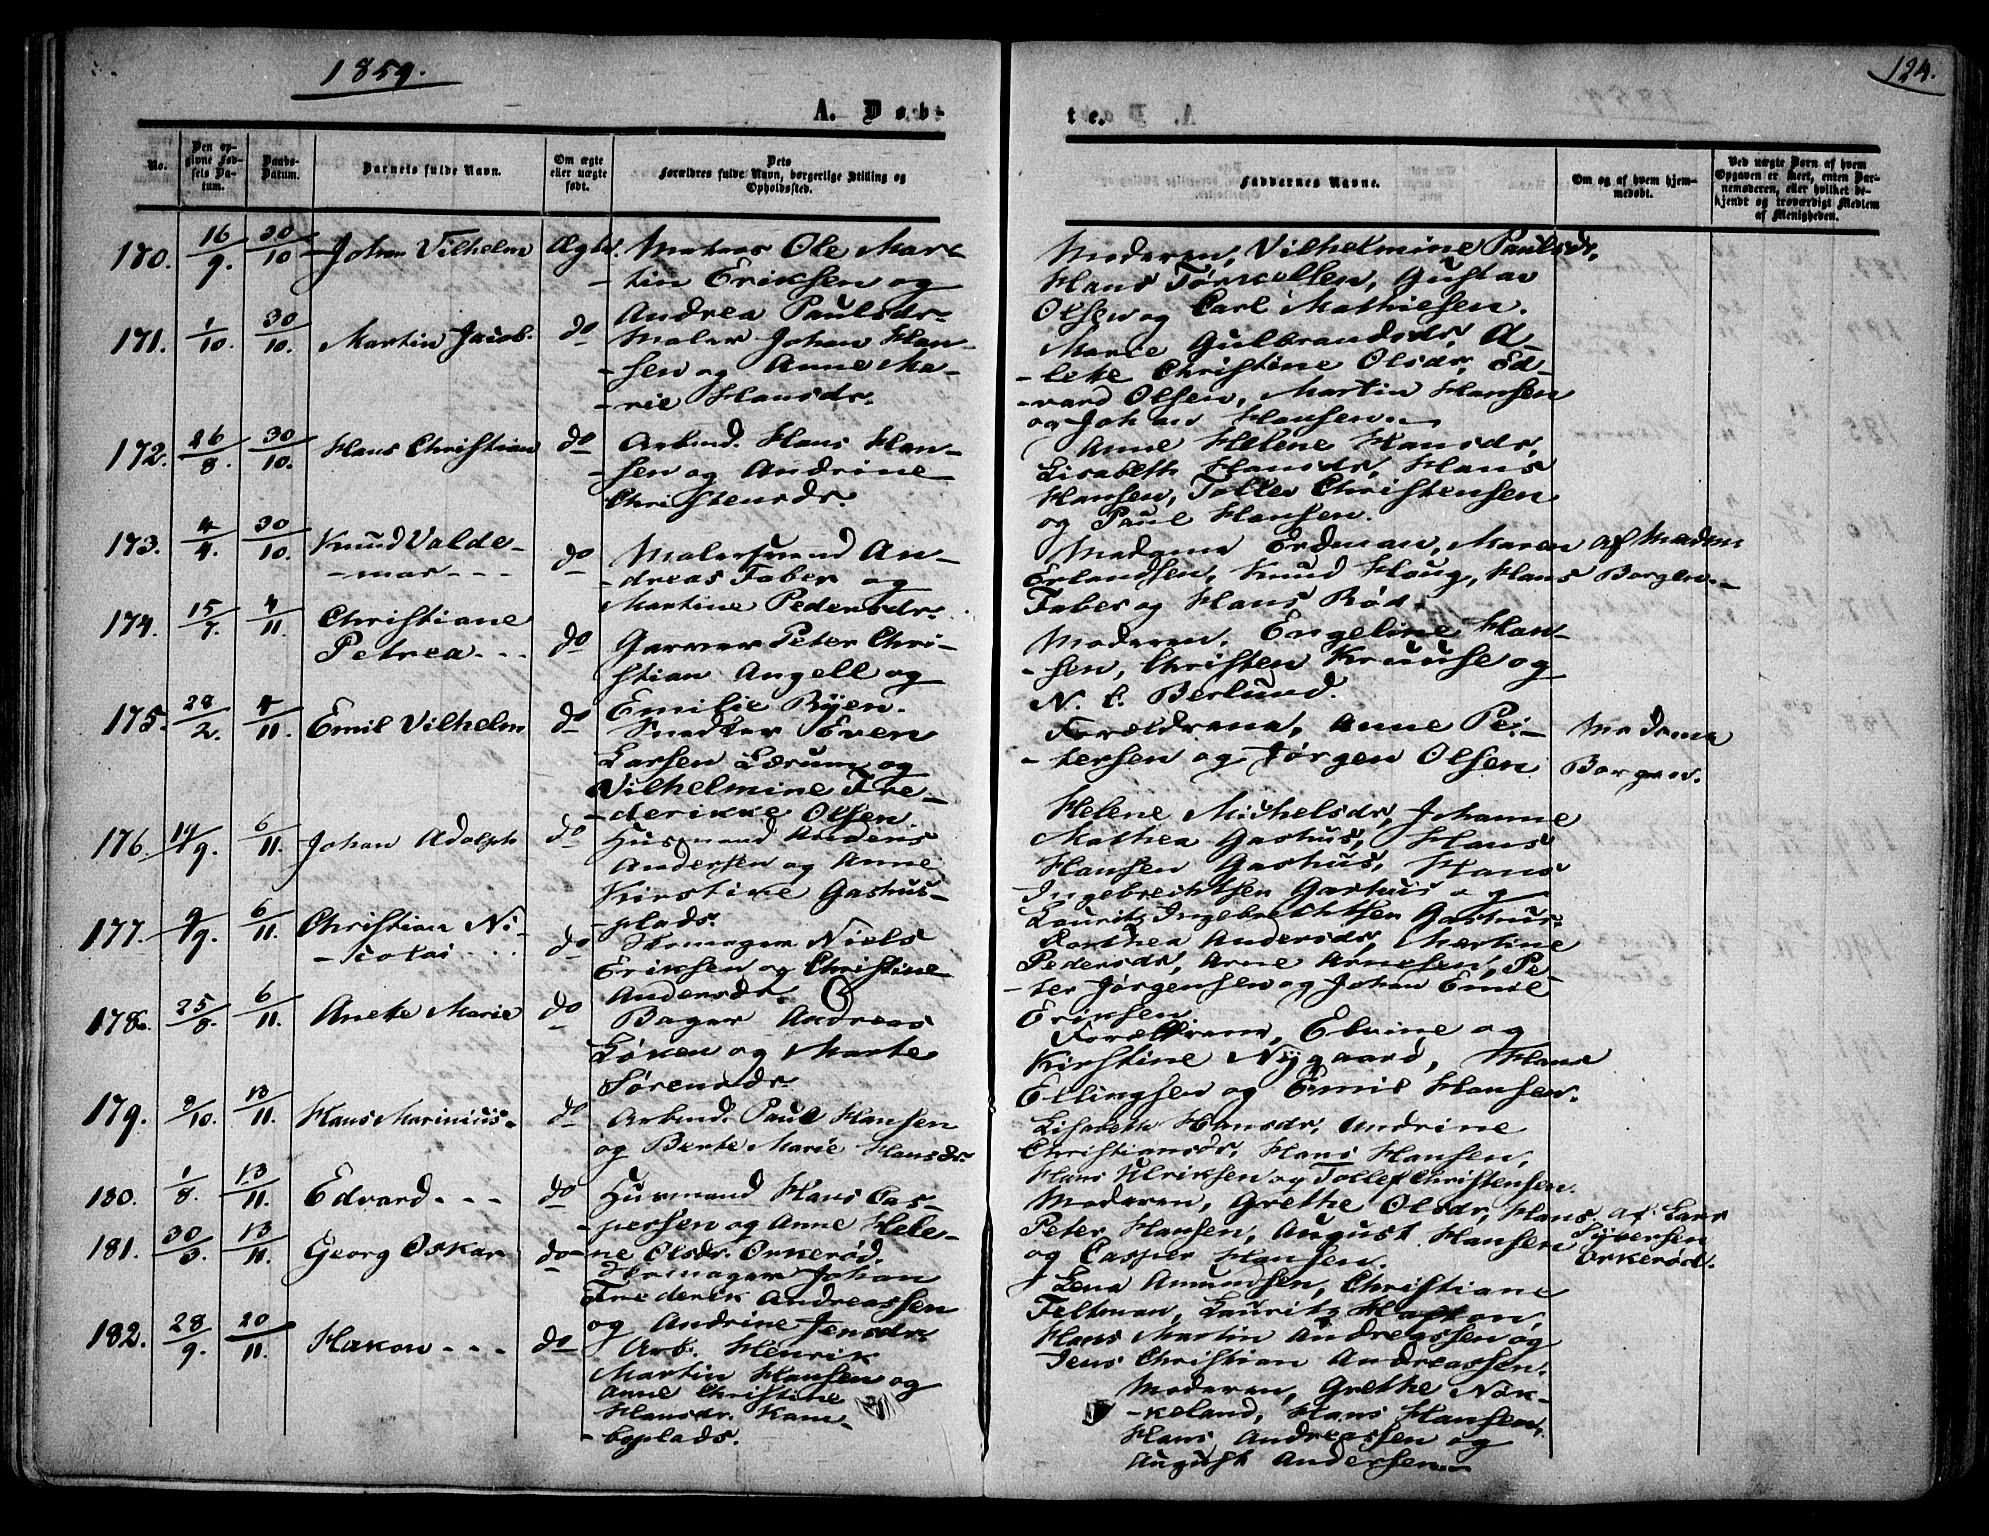 1859.
124.
A. Døb-
te.
No.
Den op-
givne Fød-
sels Da-
tum.
Daabs-
Datum.
Barnets fulde Navn.
Om ægte
eller uægte
født.
Dets
Forældres fulde Navn, borgerlige Stilling og
Opholdssted.
Faddernes Navne.
Om og af hvem hjem-
medøbt.
Ved uægte Børn af hvem
Opgaven er skeet, enten Bar-
nemoderen, eller hvilket be-
kjendt og troværdigt Medlem
af Menigheden.
180. 16/9. 30/10 Johan Vilhelm Ægte. Ole Mar-
tin Eriksen og
Andrea Paulsdr.
Moderen, Vilhelmine Paulsdr,
Hans Tørkelsen, Gustav
Olsen og Carl Mathiesen.
171. 1/10. 30/10. Martin Jacob. do Maler Johan Han-
sen og Anne Ma-
rie Hansdr.
Marie Gulbrandsdr, A-
lete Christine Olsdr, Ed-
vard Olsen, Martin Hansen
og Johan Hansen.
172. 26/8. 30/10. Hans Christian do Arbmd. Hans Han-
sen og Andrine
Christensdr.
Anne Helene Hansdr,
Lisabeth Hansdr, Hans
Hansen, Tollef Christensen
og Paul Hansen.
173. 4/4. 30/10. Knud Valde-
mar - - - do Malersvend An-
dreas Faber og
Martine Pedersdr.
Madame Erdman, Maren
Erlandsen, Knud Haug, Hans
Faber og Hans Rød.
af Madam
Borgen.
174. 15/7. 4/11. Christiane
Petrea - - - do Garver Peter Chri-
stian Angell og
Emilie Byen.
Moderen, Engeline Han-
sen, Christen Kruuse og
N. C. Berlund.
175. 28/2. 4/11. Emil Vilhelm do Snedker Even
Larsen Lærum og
Vilhelmine Fre-
derikke Olsen.
Forældrene, Anne Pe-
tersen og Jørgen Olsen
Madame
Borgen.
176. 14/9. 6/11. Johan Adolph do Husmand Anders
Andersen og Anne
Kirstine Gashus-
plads.
Helene Michelsdr, Johanne
Mathea Gashus, Hans
Hansen Gashus, Hans
Ingebrechtsen Gashus og
Lauritz Ingebrechtsen Gashus.
177. 9/9. 6/11. Christian Ni-
colai - - - do Skomager Niels
Eriksen og Christine
Andersdr.
Dorthea Andersdr, Martine
Pedersdr, Arne Arnesen, Pe-
ter Jørgensen og Johan Emil
Eriksen.
178. 25/8. 6/11. Anete Marie do Bager Andreas
Løken og Marte
Sørensdr.
Forældrene, Elvine og
Kirstine Nygaard, Hans
Ellingsen og Emil Hansen.
179. 9/10. 13/11. Hans Marinius. do Arbmd. Paul Hansen
og Berte Marie Hansdr.
Lisabeth Hansdr, Andrine
Christiansdr, Hans Hansen,
Hans Ulriksen og Tollef Christensen.
180. 1/8. 13/11. Edvard - - - do Husmand Hans Cas-
persen og Anne Hele-
ne Olsdr. Orkerød.
Moderen, Grethe Olsdr, Hans
Peter Hansen, August Hansen
og Casper Hansen.
af Lars
Syversen
Orkerød.
181. 30/3. 13/11. Georg Oskar do Skomager Johan
Frederik Andreassen
og Andrine Jensdr.
Lena Amundsen, Christiane
Feltman, Lauritz
Hans Martin Andreassen og
Jens Christian Andreassen.
182. 28/9. 20/11. Hakon - - - do Arb. Henrik
Martin Hansen og
Anne Christine
Hansdr. Kam-
boplads.
Moderen, Grethe Nøk-
keland, Hans Hansen,
Hans Andreassen og
August Andersen.